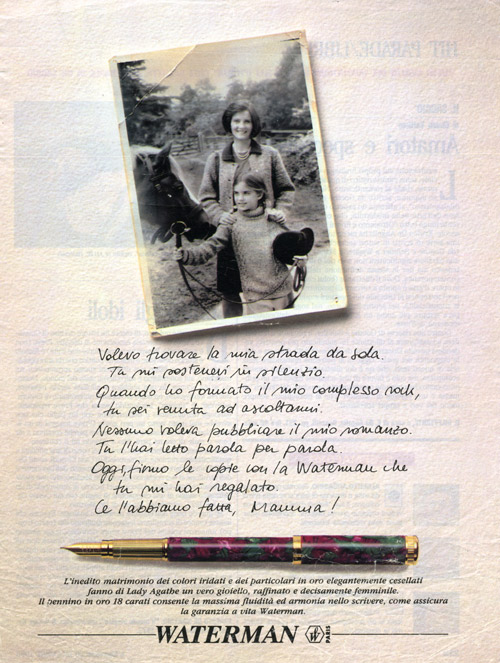 Volevo trovare la mia strada da sola.
Tu mi sostenevi in silenzio.
Quando ho formato il mio complesso rock,
tu sei venuta ad ascoltarmi.
Nessuno voleva pubblicare il mio romanzo.
Tu l'hai letto parola per parola.
Oggi, firmo le copie con la Waterman che
tu mi hai regalato.
Ce l'abbiamo fatta, Mamma!
L'inedito matrimonio dei colori iridati e dei particolari in oro elegantemente cesellati
fanno di Lady Agathe un vero gioiello, raffinato e decisamente femminile.
Il pennino in oro 18 carati consente la massima fluidità ed armonia nello scrivere, come assicura
la garanzia a vita Waterman.
WATERMAN PARIS